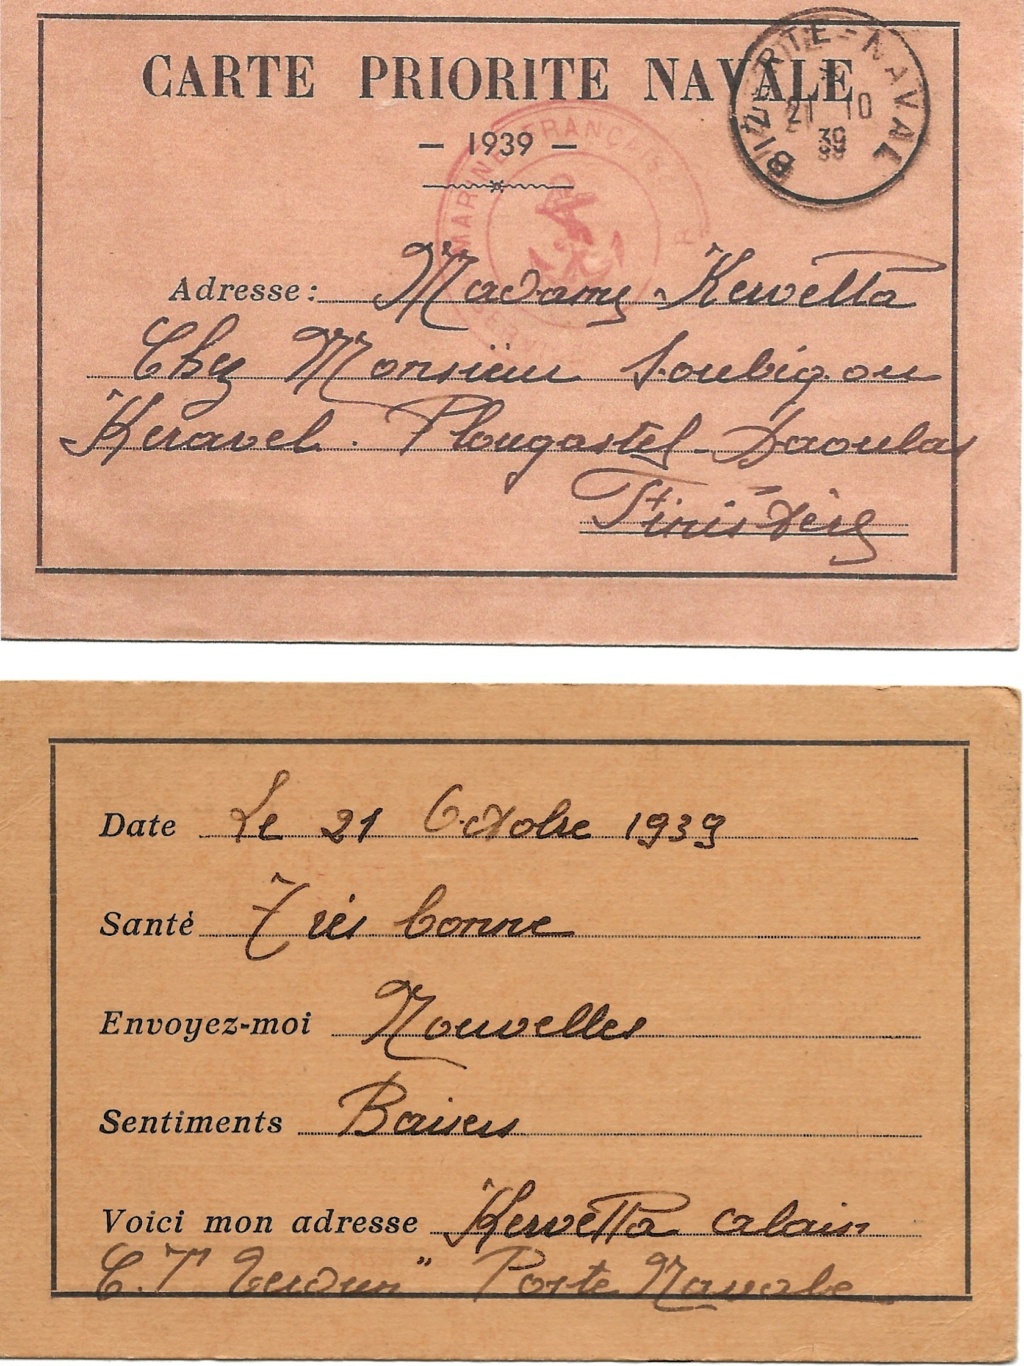 CARTE PRIORITE NAVALE
BIZERTE-NAVAL
21 10
39
— 1939 —
MARINE FRANÇAISE
SERVICE
Adresse: Madame Kervella
Chez Monsieur Soubigou
Keravel. Plougastel-Daoulas
Finistère
Date Le 21 Octobre 1939
Santé Très bonne
Envoyez-moi Nouvelles
Sentiments Baisers
Voici mon adresse Kervella alain
C.T Poste Navale